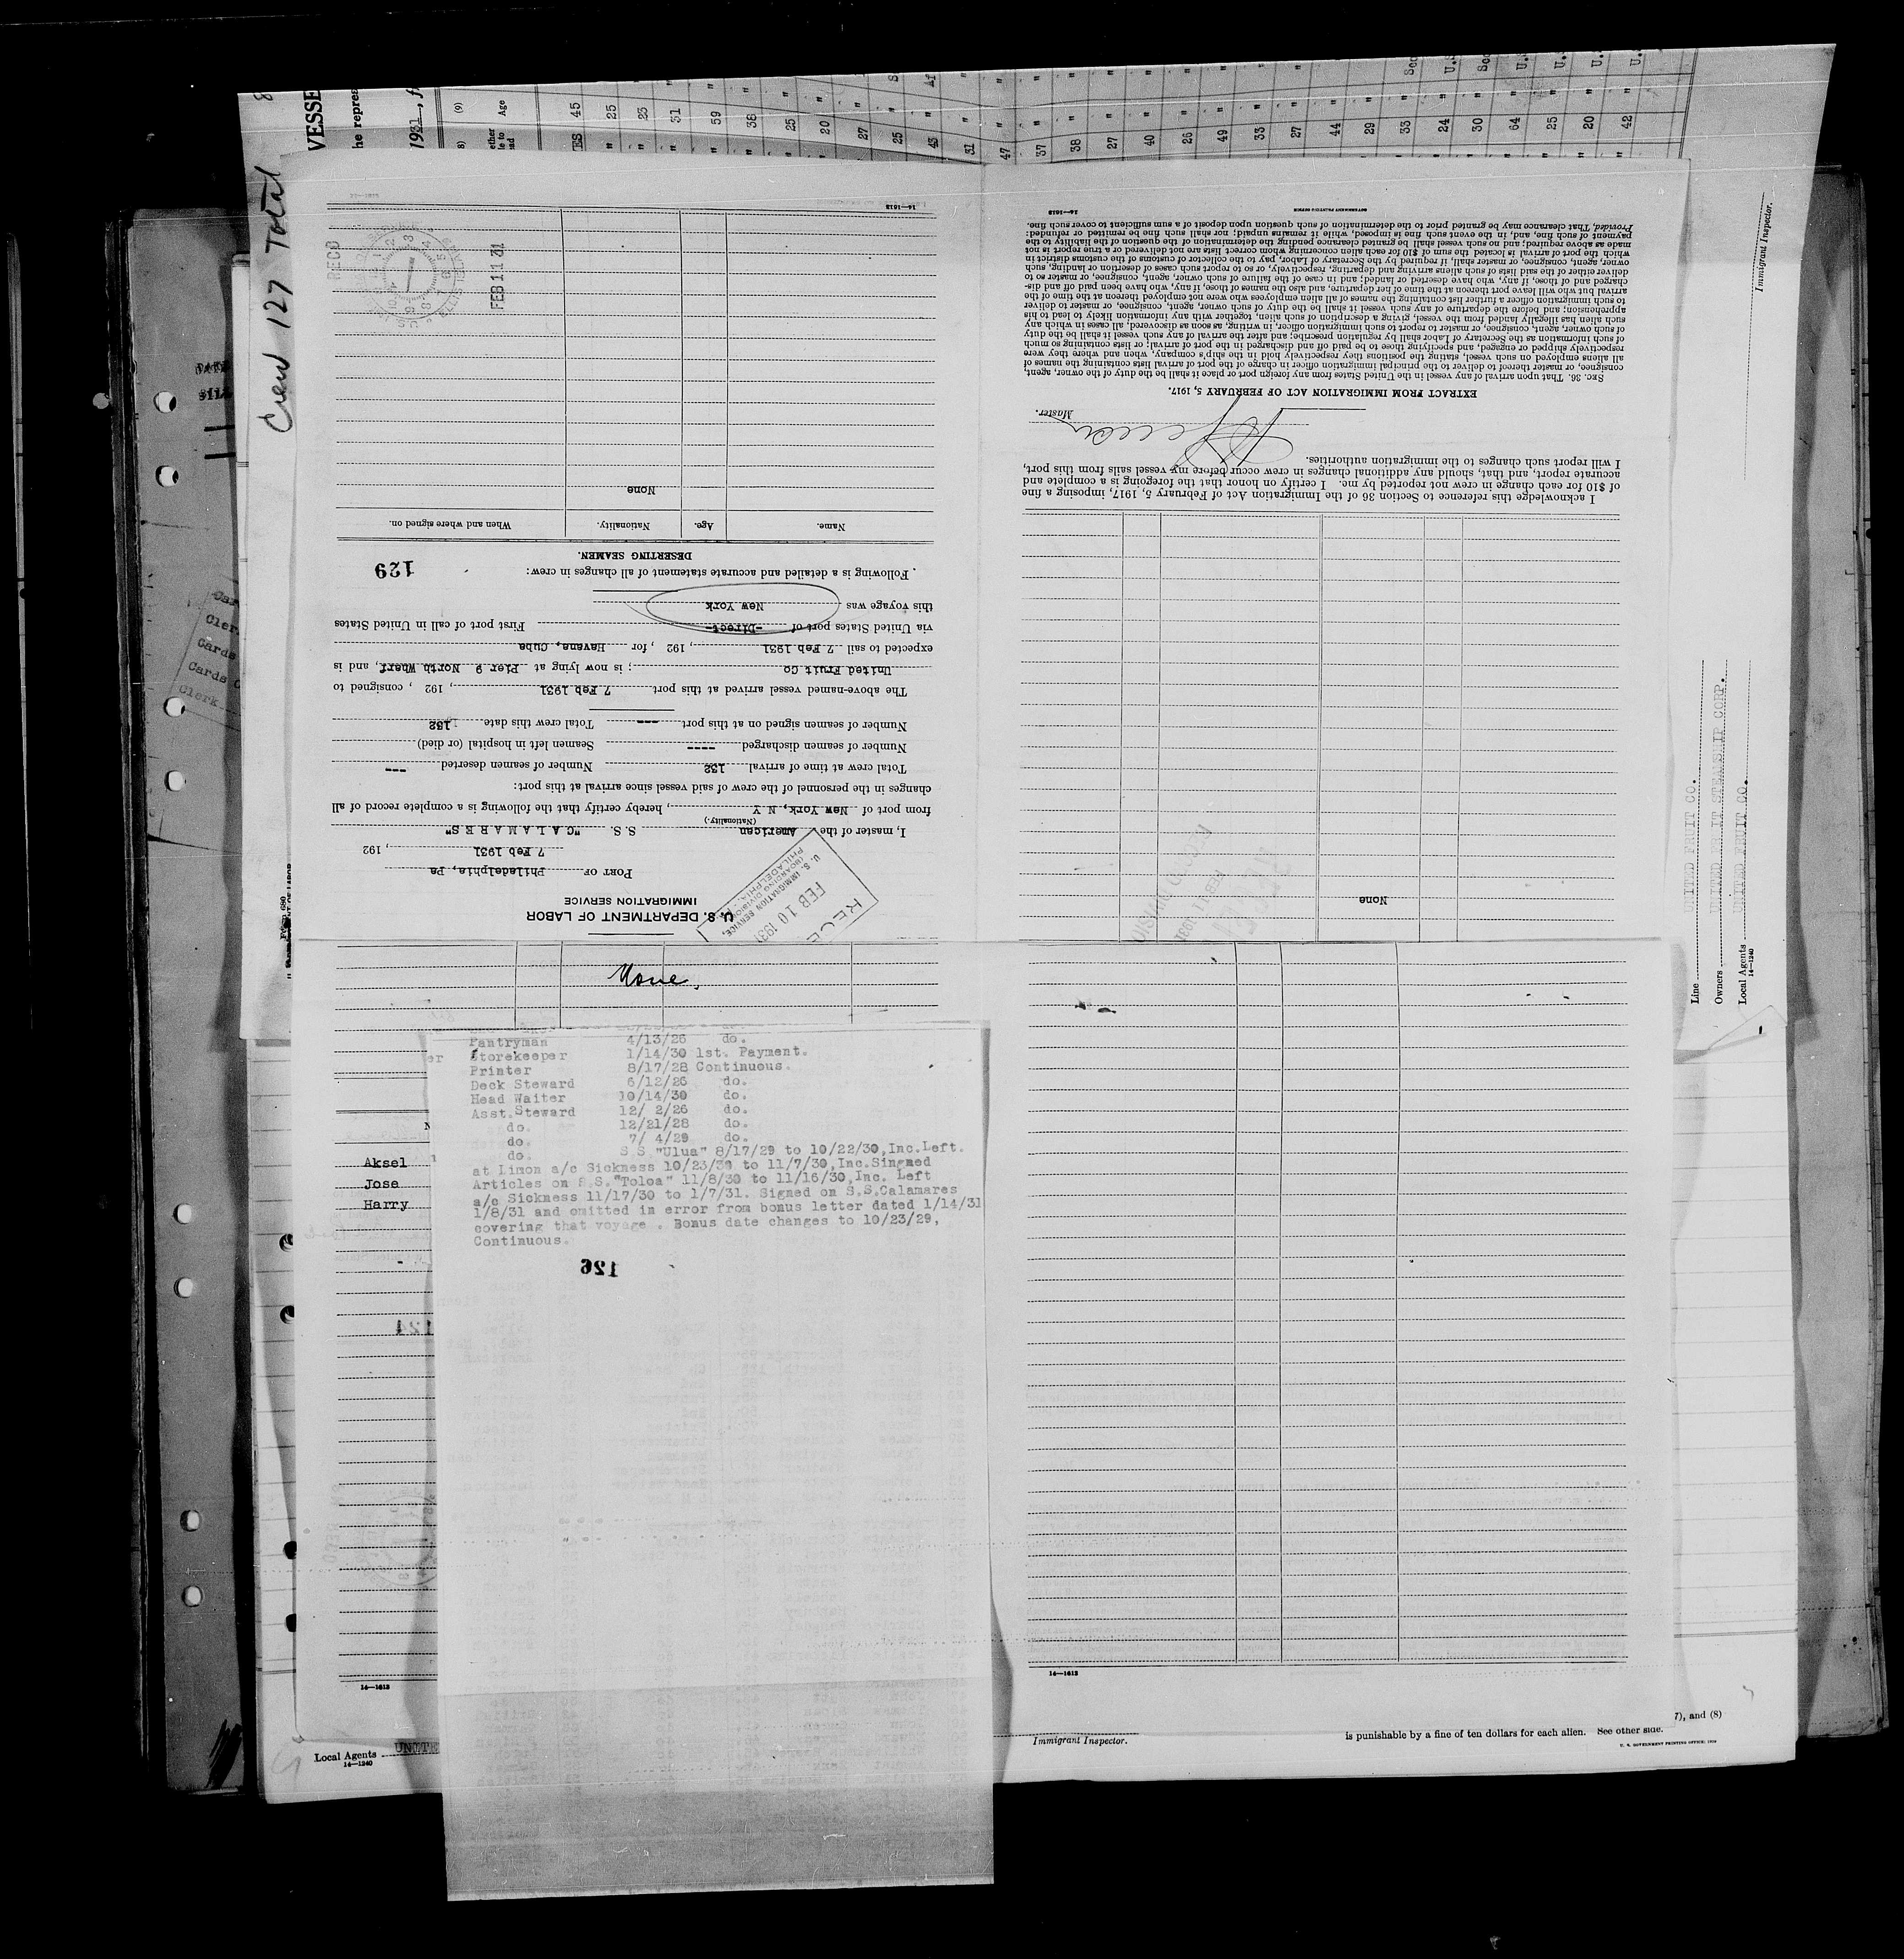 Crew 127 Total
VESSE
he represe
1931, f
(9)
Age
45
25
23
31
59
38
25
20
27
25
43
31
47
37
38
27
40
26
49
33
27
44
29
33
24
30
64
25
20
42
U. S. DEPARTMENT OF LABOR
IMMIGRATION SERVICE
PORT OF Philadelphia, Pa
7 Feb 1931, 192
I, master of the American S. S. "C A L A M A R E S"
(Nationality.)
from port of New York, N Y, hereby certify that the following is a complete record of all
changes in the personnel of the crew of said vessel since arrival at this port:
Total crew at time of arrival 132 Number of seamen deserted ---
Number of seamen discharged ---- Seamen left in hospital (or died)
Number of seamen signed on at this port --- Total crew this date 132
The above-named vessel arrived at this port 7 Feb 1931, 192 , consigned to
United Fruit Co ; is now lying at Pier 9 North Wharf, and is
expected to sail 7 Feb 1931, 192 , for Havana, Cuba
via United States port of -Direct- First port of call in United States
this voyage was New York
Following is a detailed and accurate statement of all changes in crew:
129
DESERTING SEAMEN.
Name. Age. Nationality. When and where signed on.
None
14—1613
REC'D
FEB 11 31
RECE
FEB 10 1931
U. S. IMMIGRATION SERVICE,
BOARDING DIVISION
PHILADELPHIA
None
I acknowledge this reference to Section 36 of the Immigration Act of February 5, 1917, imposing a fine
of $10 for each change in crew not reported by me. I certify on honor that the foregoing is a complete and
accurate report, and that, should any additional changes in crew occur before my vessel sails from this port,
I will report such changes to the immigration authorities.
Master.
EXTRACT FROM IMMIGRATION ACT OF FEBRUARY 5, 1917.
Sec. 36. That upon arrival of any vessel in the United States from any foreign port or place it shall be the duty of the owner, agent,
consignee, or master thereof to deliver to the principal immigration officer in charge of the port of arrival lists containing the names of
all aliens employed on such vessel, stating the positions they respectively hold in the ship's company, when and where they were
respectively shipped or engaged, and specifying those to be paid off and discharged in the port of arrival; or lists containing so much
of such information as the Secretary of Labor shall by regulation prescribe; and after the arrival of any such vessel it shall be the duty
of such owner, agent, consignee, or master to report to such immigration officer, in writing, as soon as discovered, all cases in which any
such alien has illegally landed from the vessel, giving a description of such alien, together with any information likely to lead to his
apprehension; and before the departure of any such vessel it shall be the duty of such owner, agent, consignee, or master to deliver
to such immigration officer a further list containing the names of all alien employees who were not employed thereon at the time of the
arrival but who will leave port thereon at the time of her departure, and also the names of those, if any, who have been paid off and dis-
charged and of those, if any, who have deserted or landed; and in case of the failure of such owner, agent, consignee, or master so to
deliver either of the said lists of such aliens arriving and departing, respectively, or so to report such cases of desertion or landing, such
owner, agent, consignee, or master shall, if required by the Secretary of Labor, pay to the collector of customs of the customs district in
which the port of arrival is located the sum of $10 for each alien concerning whom correct lists are not delivered or a true report is not
made as above required; and no such vessel shall be granted clearance pending the determination of the question of the liability to the
payment of such fine, and, in the event such fine is imposed, while it remains unpaid; nor shall such fine be remitted or refunded:
Provided, That clearance may be granted prior to the determination of such question upon deposit of a sum sufficient to cover such fine.
14—1613 GOVERNMENT PRINTING OFFICE
Immigrant Inspector.
Line UNITED FRUIT CO.
Owners UNITED FRUIT STEAMSHIP CORP.
Local Agents UNITED FRUIT CO.
14—1240
None.
Pantryman 4/13/26 do.
er Storekeeper 1/14/30 1st. Payment.
Printer 8/17/28 Continuous.
Deck Steward 6/12/26 do.
Head Waiter 10/14/30 do.
Asst.Steward 12/ 2/26 do.
do. 12/21/28 do.
do. 7/ 4/29 do.
do. S.S."Ulua" 8/17/29 to 10/22/30,Inc.Left.
at Limon a/c Sickness 10/23/30 to 11/7/30,Inc.Singned
Articles on S.S."Toloa" 11/8/30 to 11/16/30,Inc. Left
a/c Sickness 11/17/30 to 1/7/31. Signed on S.S.Calamares
1/8/31 and omitted in error from bonus letter dated 1/14/31
covering that voyage . Bonus date changes to 10/23/29,
Continuous.
126
Aksel
Jose
Harry
124
14—1613
14—1613
Local Agents UNITE
14—1240
Immigrant Inspector.
7), and (8)
is punishable by a fine of ten dollars for each alien. See other side.
U. S. GOVERNMENT PRINTING OFFICE